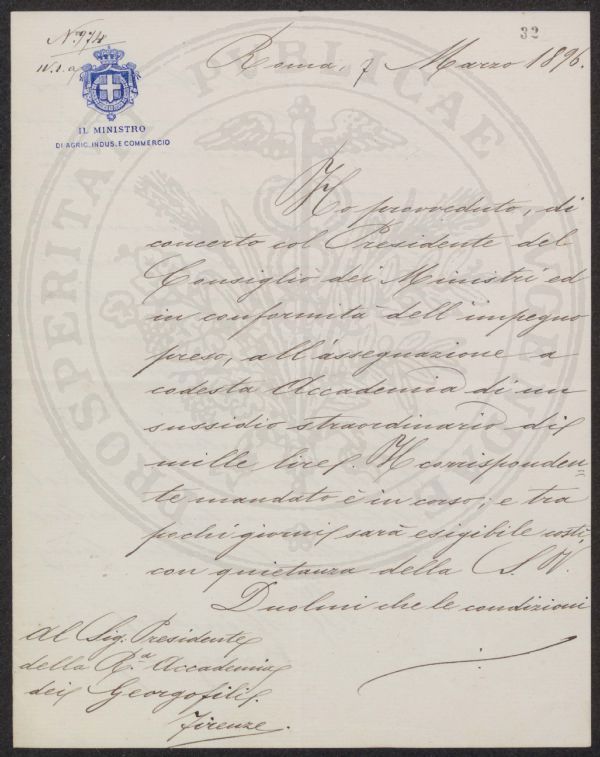 32
N.º 974
Roma, 7 Marzo 1896.
IL MINISTRO
DI AGRIC. INDUS. E COMMERCIO
Ho provveduto, di
concerto col Presidente del
Consiglio dei Ministri ed
in conformità dell'impegno
preso, all'assegnazione a
codesta Accademia di un
sussidio straordinario di
mille lire. Il corrisponden=
te mandato è in corso; e tra
pochi giorni sarà esigibile costì,
con quietanza della S. V.
Duolmi che le condizioni
Al Sig. Presidente
della R.a Accademia
dei Georgofili.
Firenze.
PROSPERITATI PUBLICAE